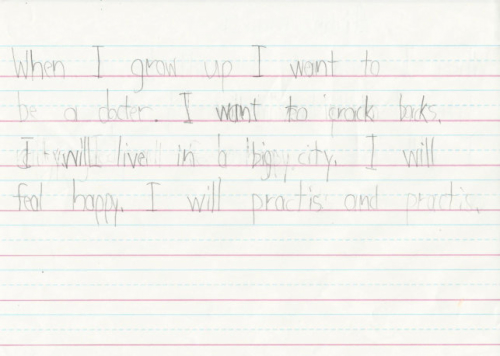 When I grow up I want to
be a docter. I want to crack backs.
I will live in a big city. I will
feal happy. I will practis and practis.